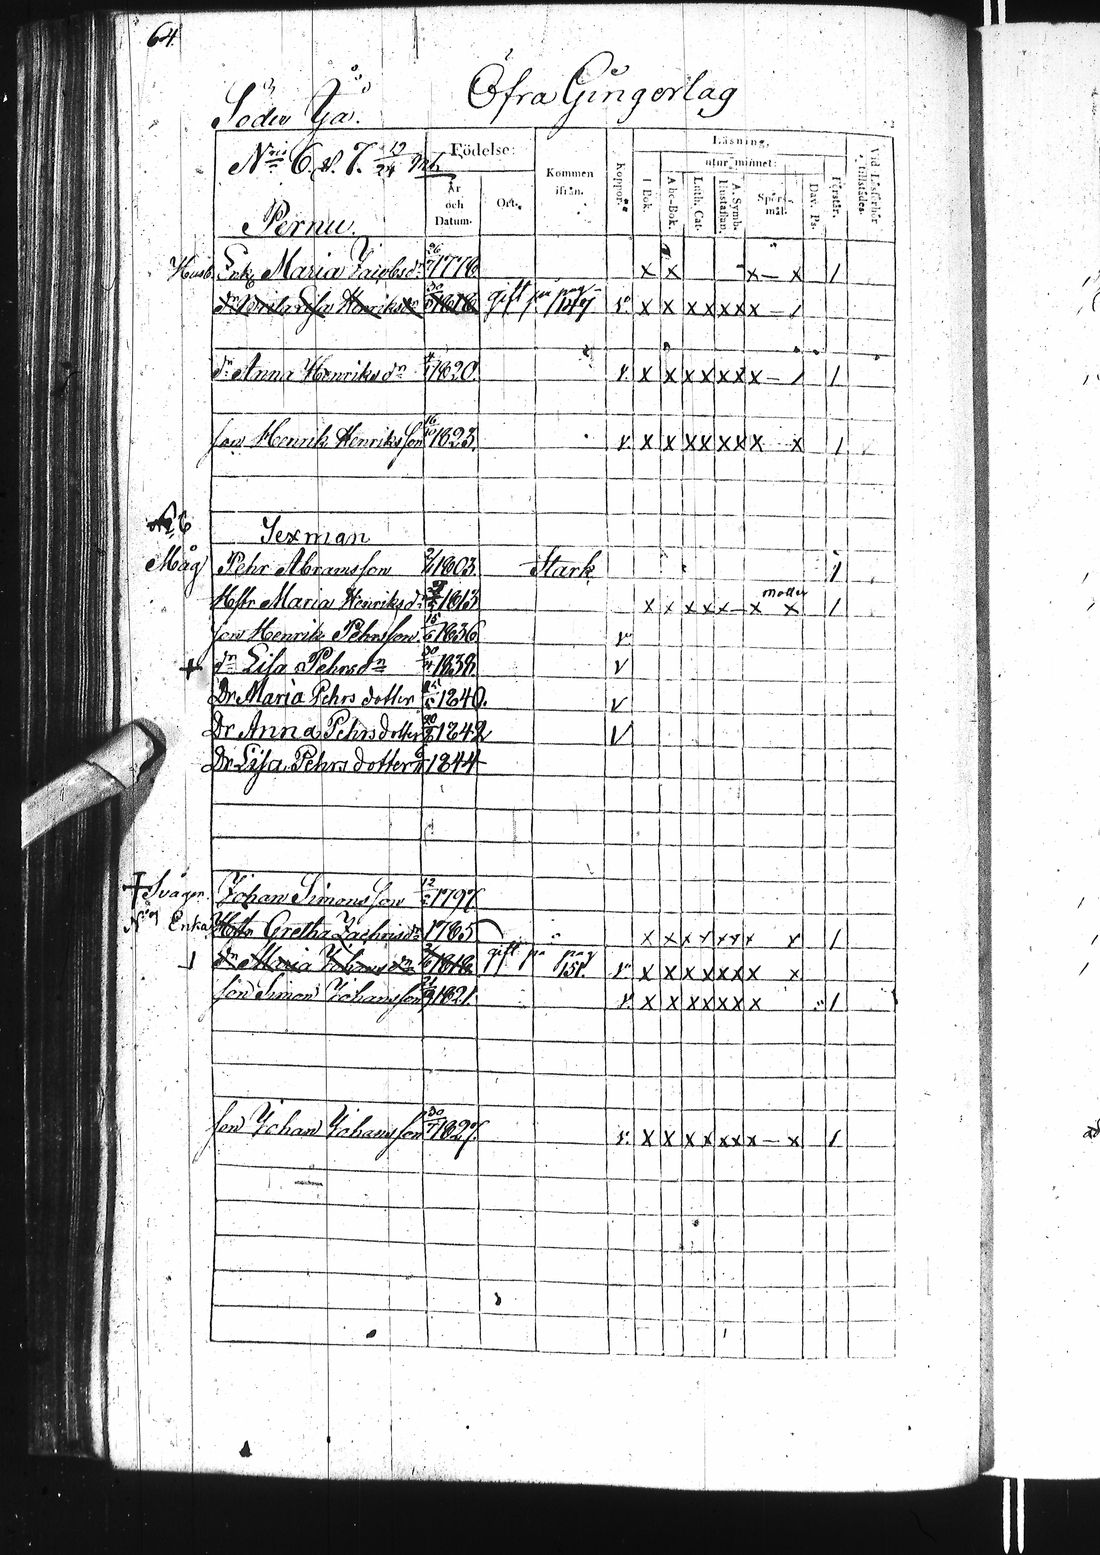 64.
Öfra Gingerlag
Söder Yä.
Nris 6. & 7. 19/24 Mtl.
Födelse:
År och Datum.
Ort.
Kommen ifrån.
Koppor.
Läsning,
utur minnet:
I Bok.
Abc-Bok.
Luth. Cat.
A. Symb. Hustaflan.
Spörs-mål.
Dav. Ps.
Förstår.
Vid Läsförhör tillstädes.
Pernu.
Enk. Maria Jacobsdr 1776 x x x — x 1
Henriksdr 1816 gift på pag x x x x x x x x — 1
dr Anna Henriksdr 1820. v. x x x x x x x x — 1 1
son Henrik Henriksson 16 1823. v. x x x x x x x x x 1
No 6
Sexman
Måg Pehr Abramsson 1803 Stark 1
Hstr Maria Henriksdr 1813 x x x x x — x x 1
son Henrik Pehrsson 15/6 1836 v
+ dn Lisa Pehrsdn 30/4 1838. v
Dr Maria Pehrs dotter 1840. v
Dr Anna Pehrs dotter 1842 v
Dr Lisa Pehrs dotter 1844
+ Svåger. Johan Simonsson 12 1797
Enka Hstr Gretha Zachrisdr 1785 x x x x x x x x 1
dr Maria Johansdr 1818 gift på pag 151. v x x x x x x x x x
son Simon Johansson 1821. v. x x x x x x x x 1
son Johan Johansson 30 1827. v. x x x x x x x x — x 1